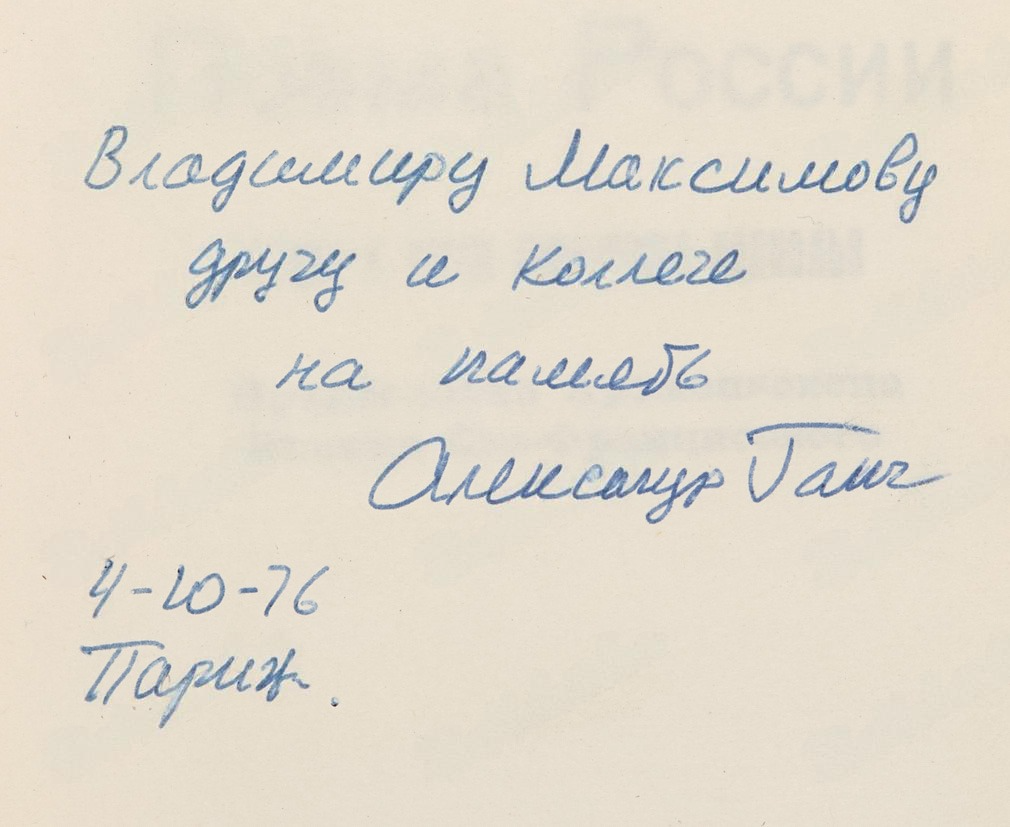 России
Владимиру Максимову
другу и коллеге
на память
Александр Галич
4-10-76
Париж.